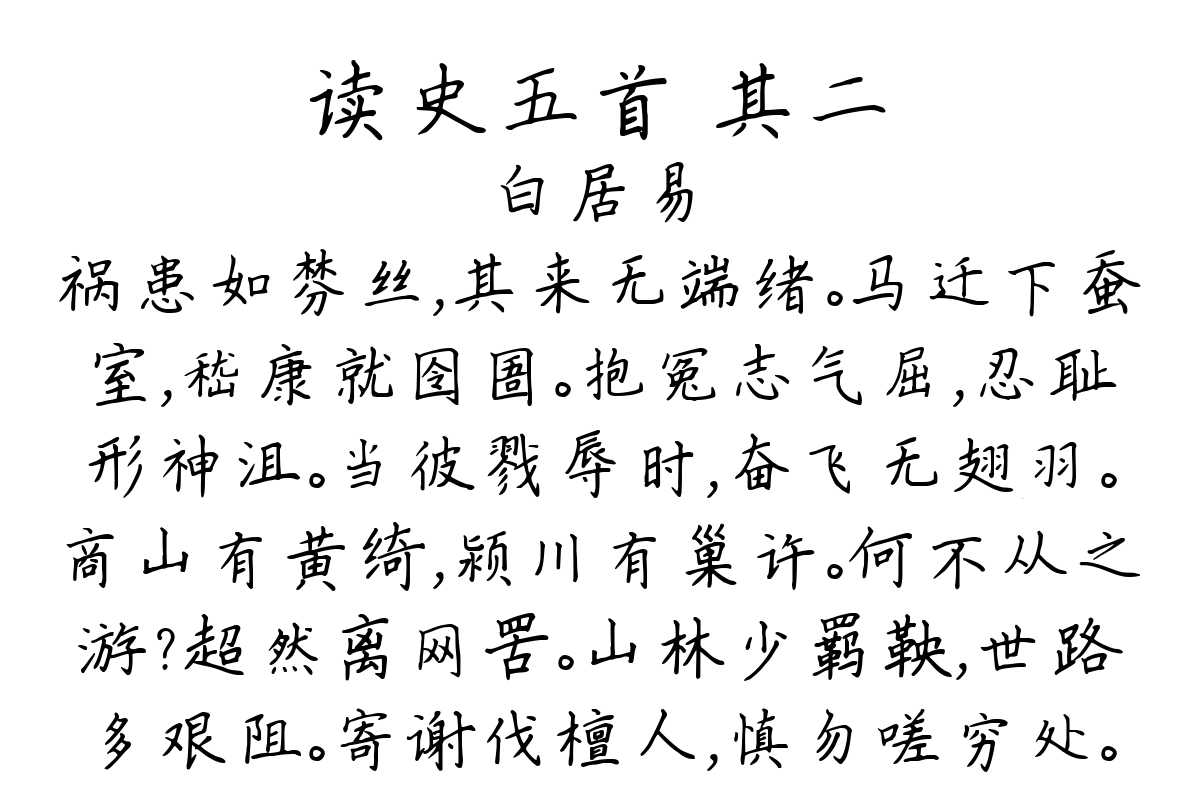 读史五首 其二
白居易
祸患如棼丝,其来无端绪。马迁下蚕
室,嵇康就囹圄。抱冤志气屈,忍耻
形神沮。当彼戮辱时,奋飞无翅羽。
商山有黄绮,颍川有巢许。何不从之
游?超然离网罟。山林少羁鞅,世路
多艰阻。寄谢伐檀人,慎勿嗟穷处。